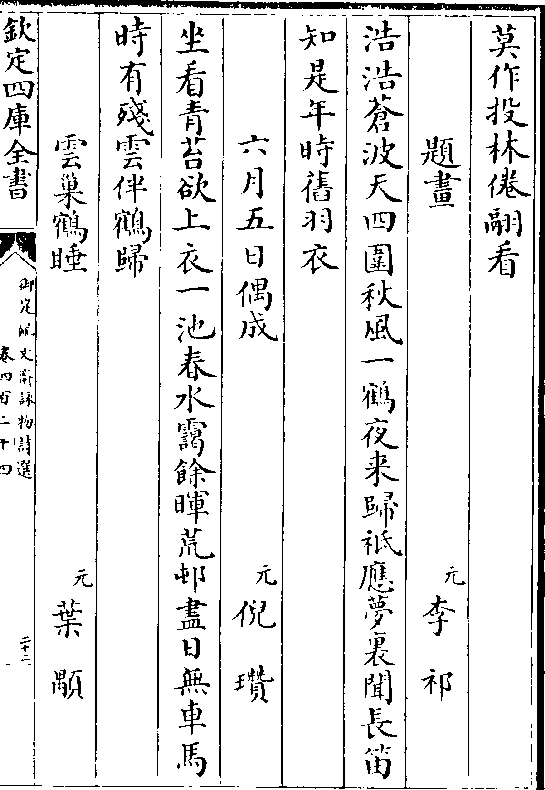 莫作投林倦翮看
題畫 元 李祁
浩浩蒼波天四圍秋風一鶴夜来歸祗應夢裏聞長笛
知是年時舊羽衣
六月五日偶成 元 倪瓚
坐看青苔欲上衣一池春水靄餘暉荒邨盡日無車馬
時有殘雲伴鶴歸
雲巢鶴睡 元 葉顒
欽定四庫全書
御定佩文齋詠物詩選
卷四百二十四
二十二